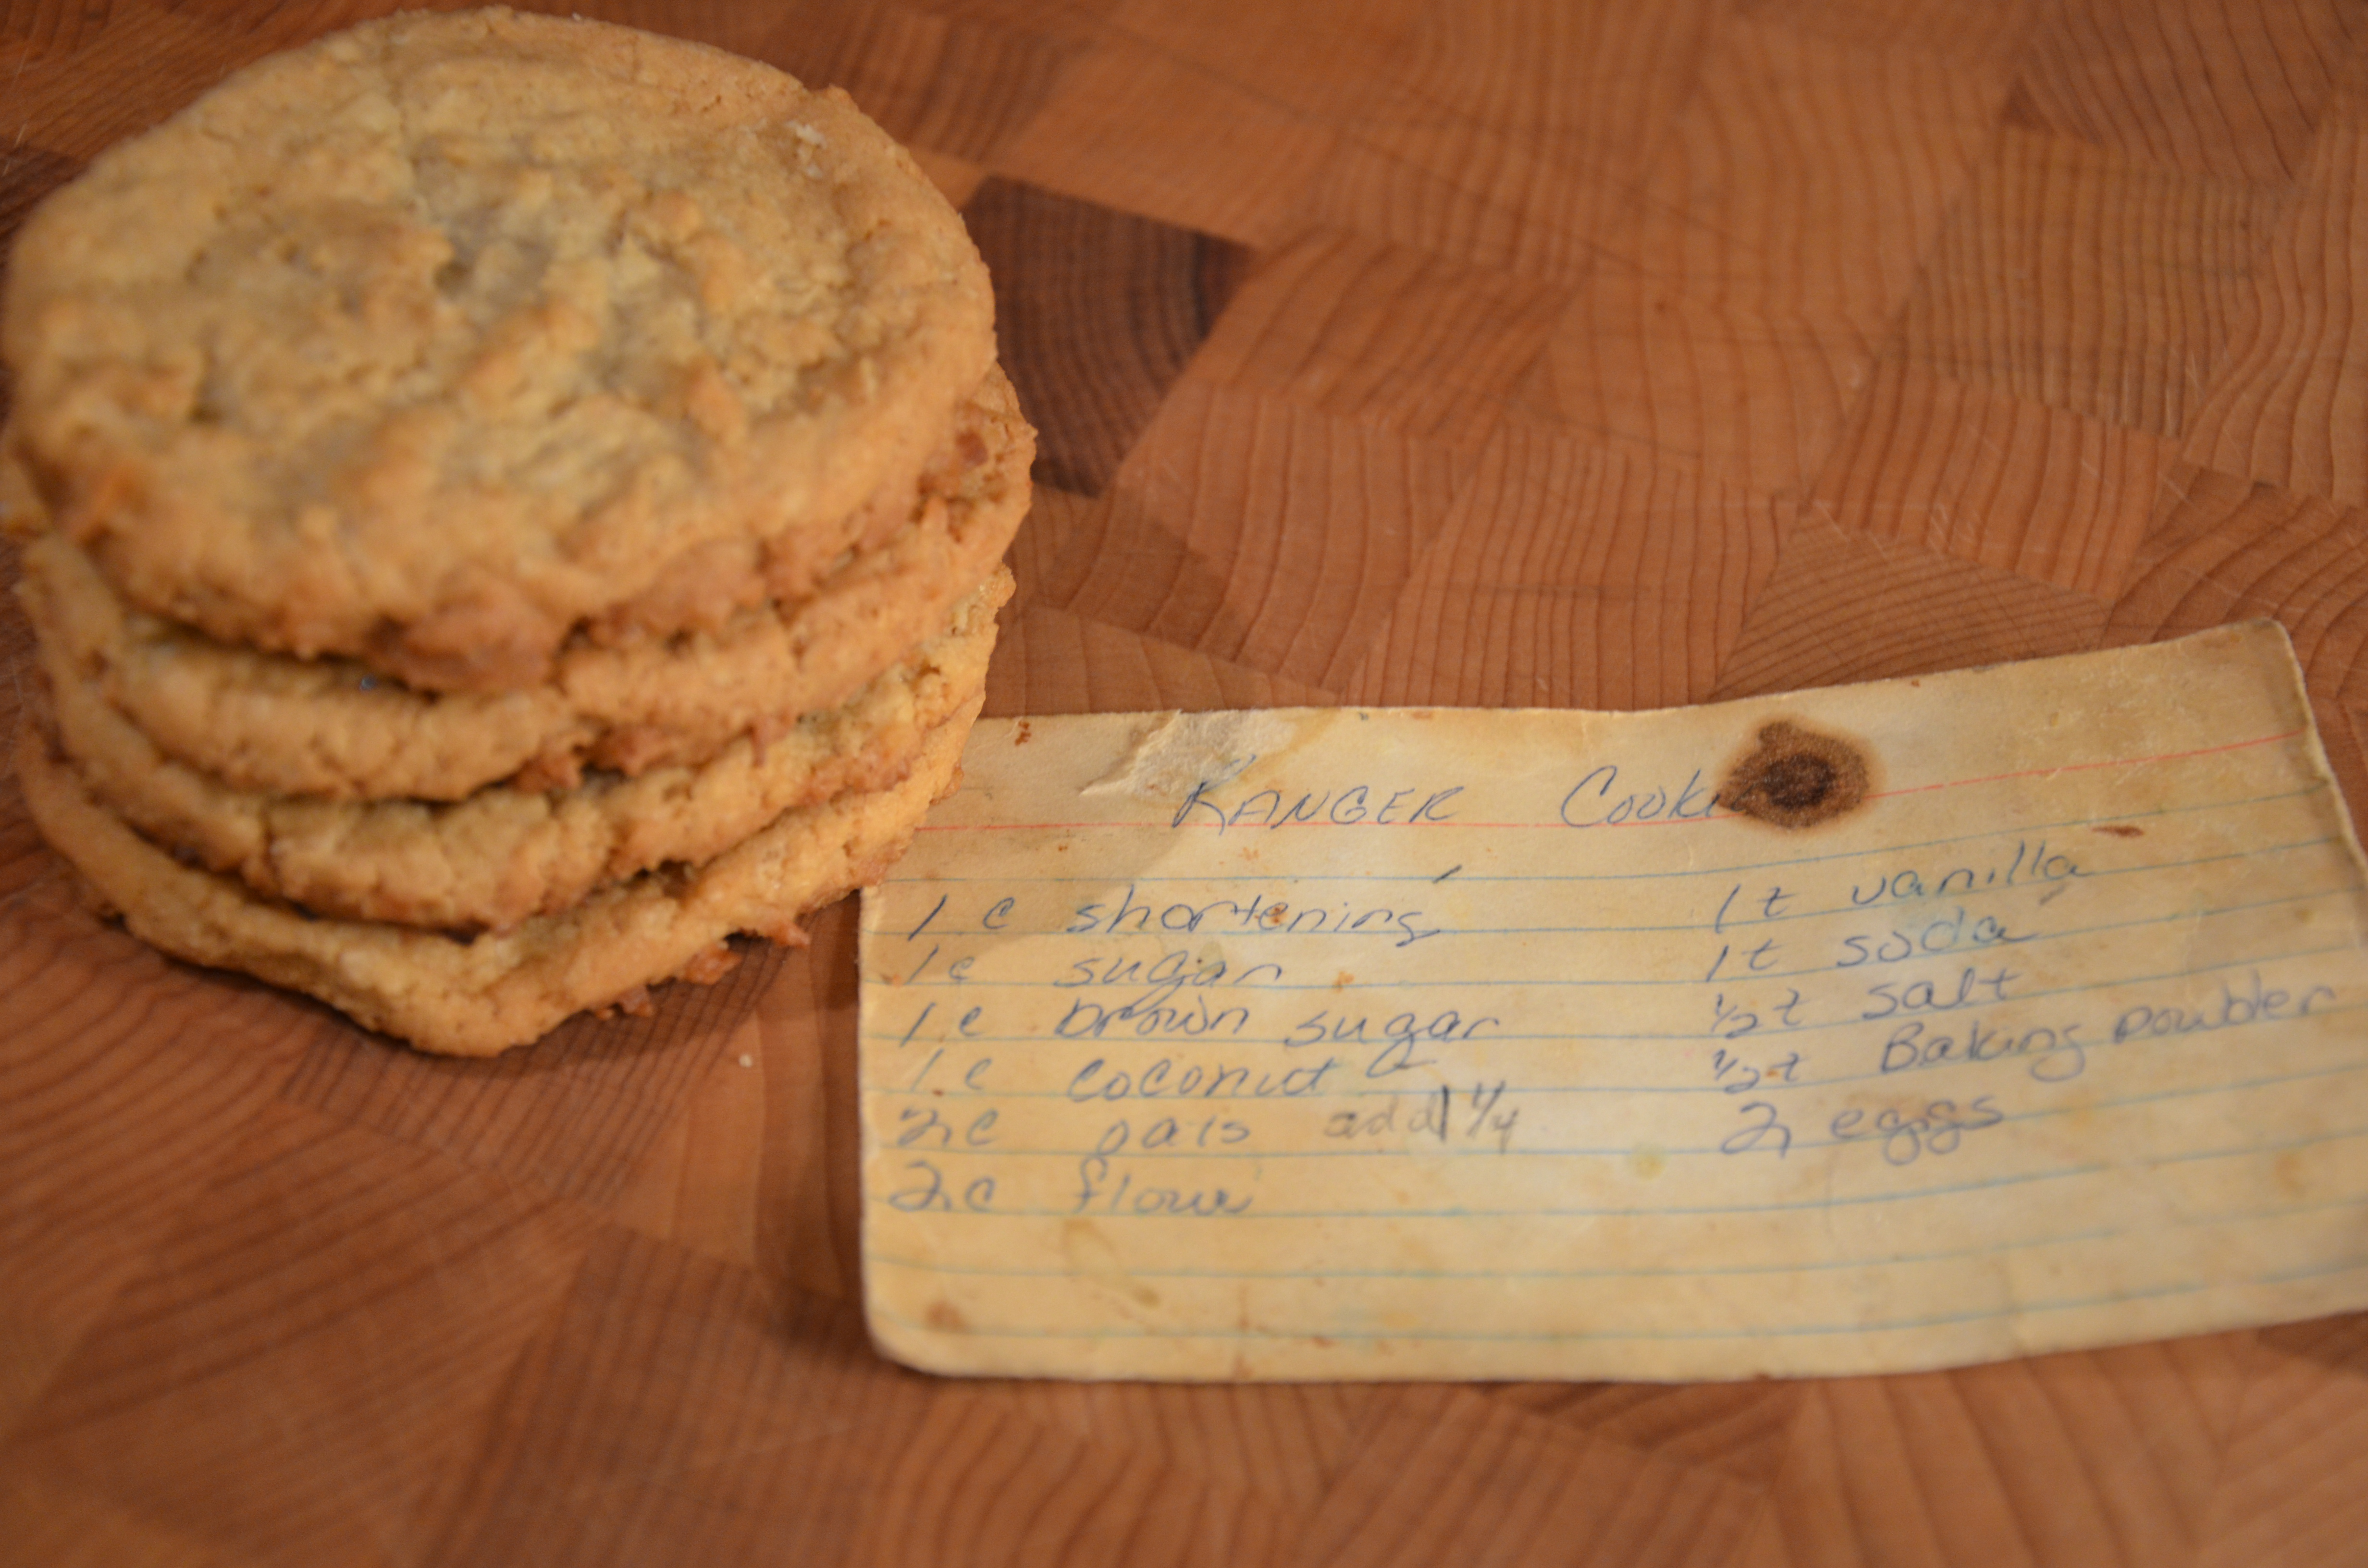 RANGER Cooki
1 c shortening
1 c sugar
1 c brown sugar
1 c coconut
2 c oats add 1 1/4
2 c flour
1 t vanilla
1 t soda
1/2 t salt
1/2 t Baking powder
2 eggs